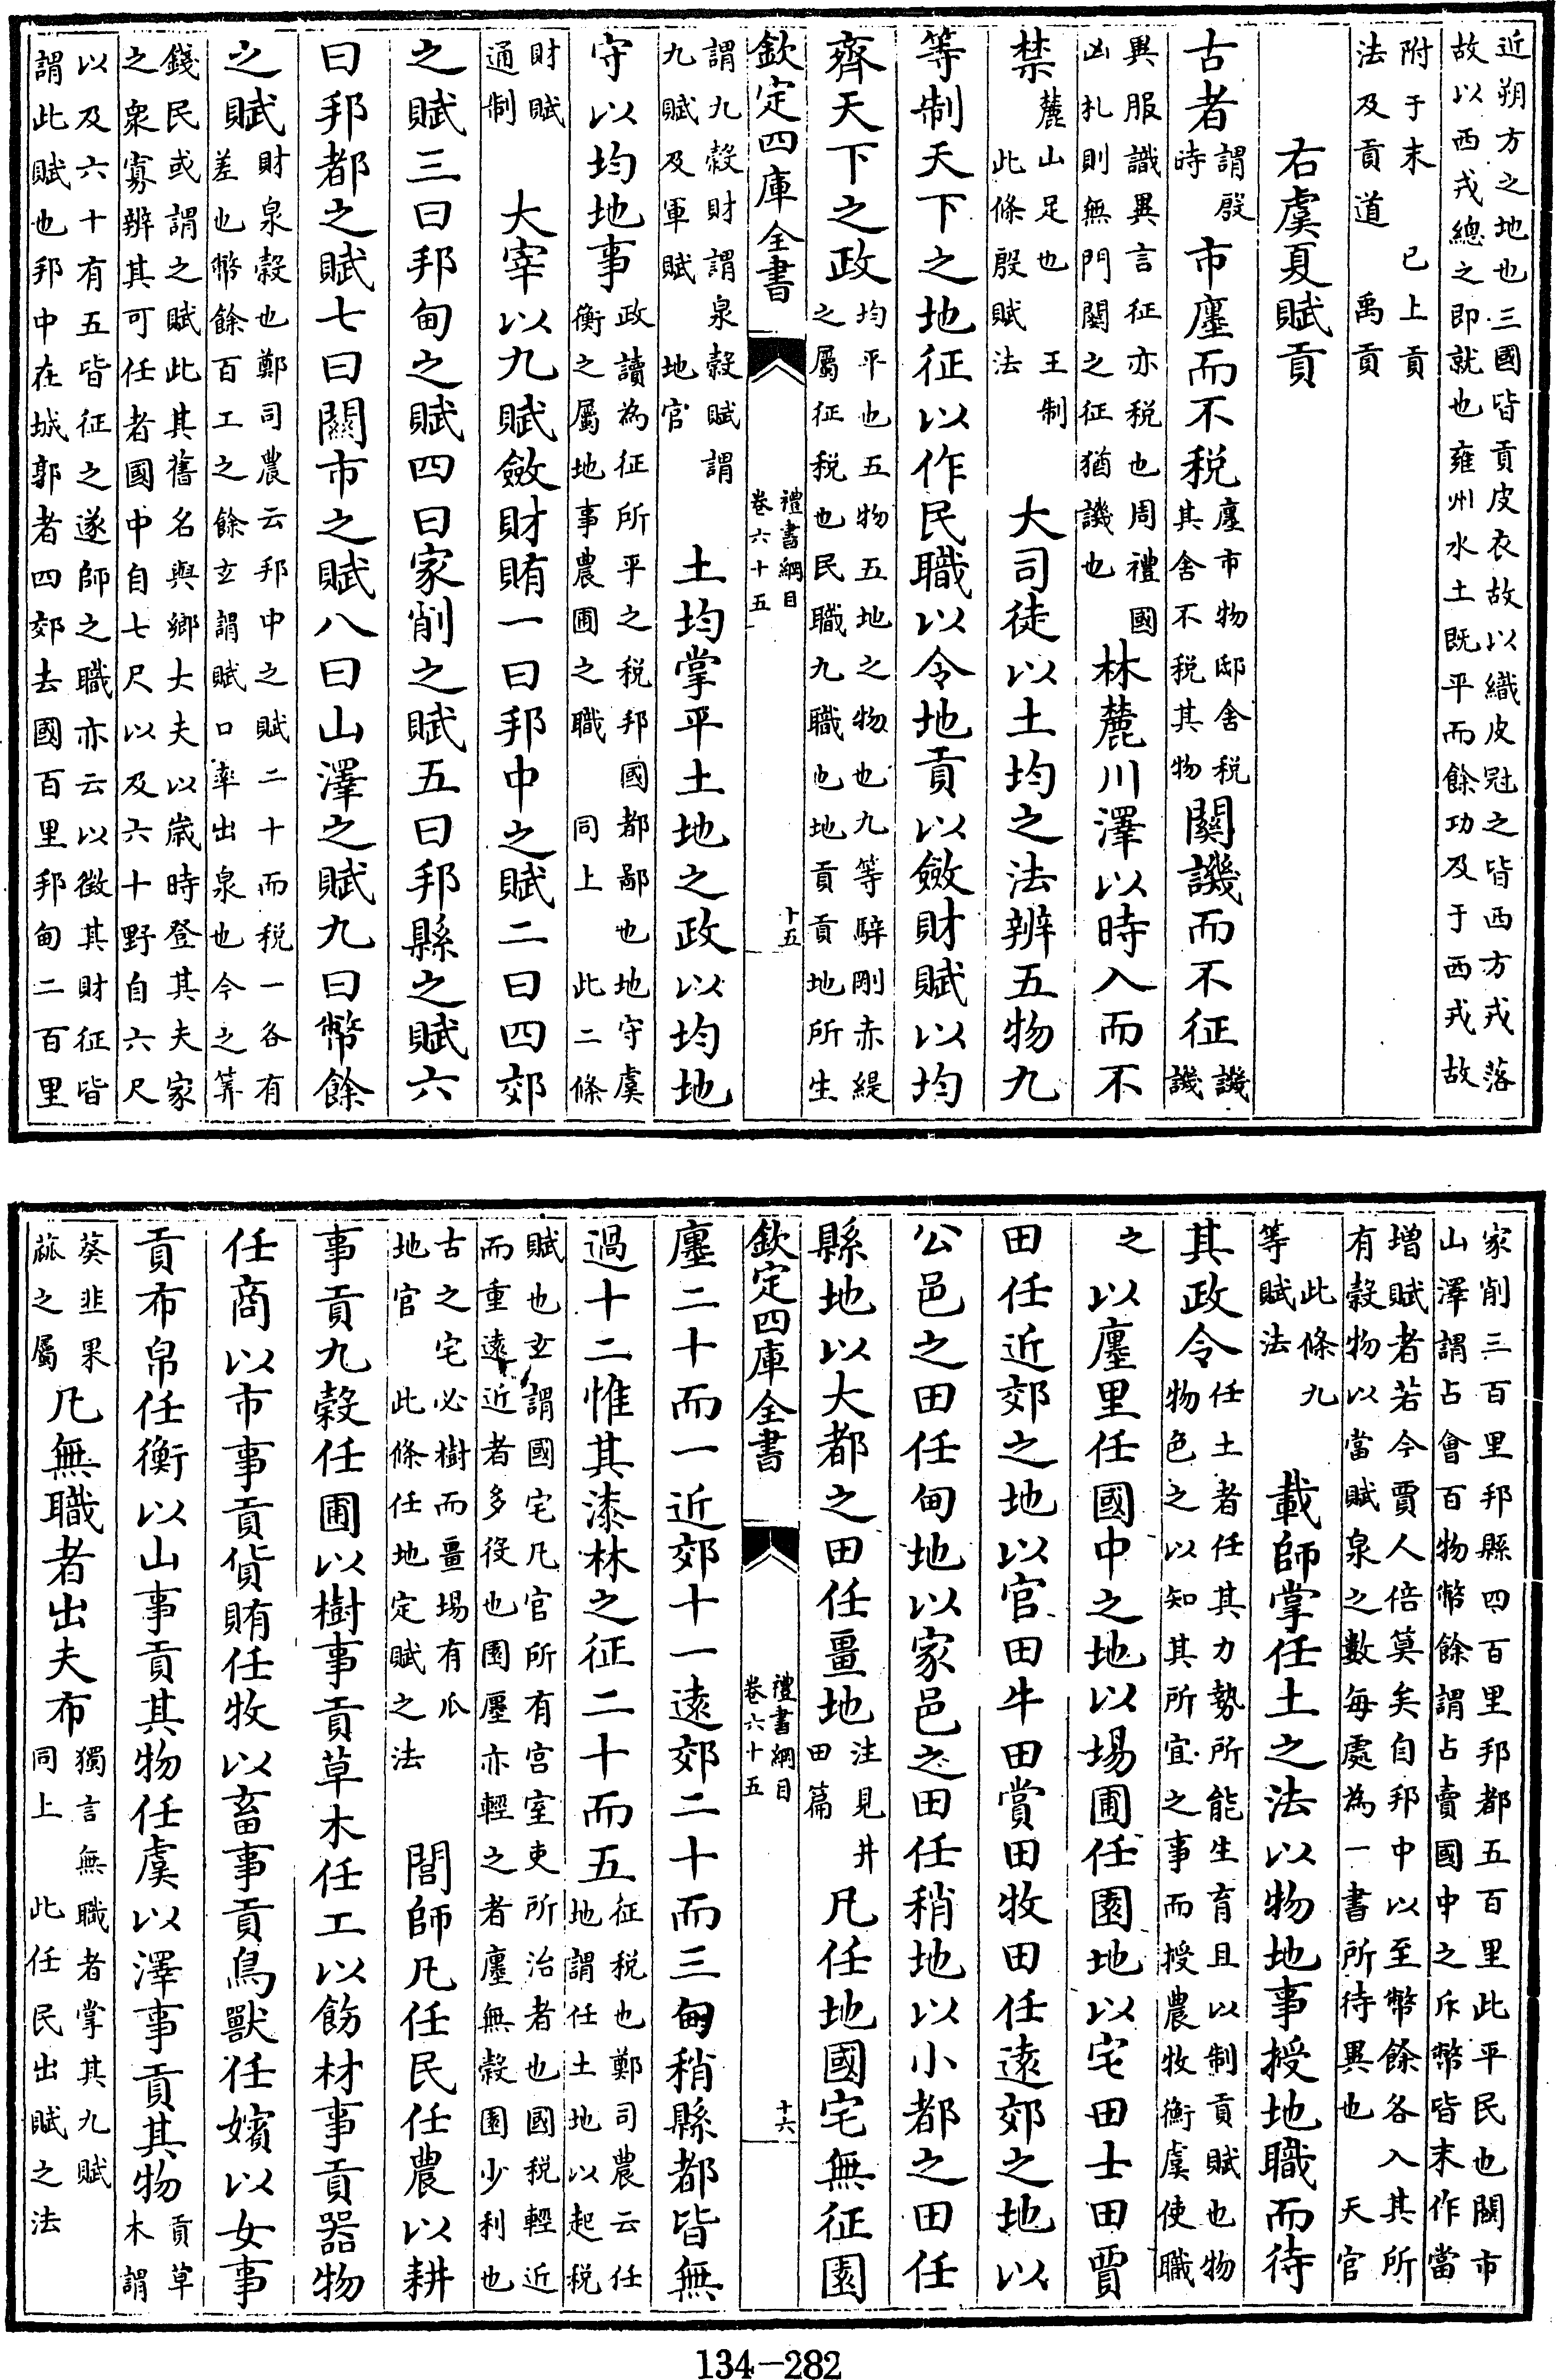 近朔方之地也三國皆貢皮衣故以織皮冠之皆西方戎落
故以西戎總之即就也雍州水土既平而餘功及于西戎故
附于末 已上貢
法及貢道 禹貢
右虞夏賦貢
古者謂殷時市廛而不税廛市物邸舍税其舍不税其物關譏而不征譏譏
異服識異言征亦税也周禮國凶札則無門關之征猶譏也林麓川澤以時入而不
禁麓山足也 王制 此條殷賦法 大司徒以土均之法辨五物九
等制天下之地征以作民職以令地貢以斂財賦以均
齊天下之政均平也五物五地之物也九等騂剛赤緹之屬征税也民職九職也地貢貢地所生
欽定四庫全書 禮書綱目 卷六十五 十五
謂九穀財謂泉穀賦謂九賦及軍賦 地官 土均掌平土地之政以均地
守以均地事政讀為征所平之税邦國都鄙也地守虞衡之屬地事農圃之職 同上 此二條
財賦通制 大宰以九賦斂財賄一曰邦中之賦二曰四郊
之賦三曰邦甸之賦四曰家削之賦五曰邦縣之賦六
曰邦都之賦七曰關市之賦八曰山澤之賦九曰幣餘
之賦財泉穀也鄭司農云邦中之賦二十而税一各有差也幣餘百工之餘玄謂賦口率出泉也今之筭
錢民或謂之賦此其舊名與鄉大夫以歲時登其夫家
之衆寡辨其可任者國中自七尺以及六十野自六尺
以及六十有五皆征之遂師之職亦云以徵其財征皆
謂此賦也邦中在城郭者四郊去國百里邦甸二百里
家削三百里邦縣四百里邦都五百里此平民也關市
山澤謂占會百物幣餘謂占賣國中之斥幣皆末作當
增賦者若今賈人倍筭矣自邦中以至幣餘各入其所
有穀物以當賦泉之數每處為一書所待異也 天官
此條九等賦法 載師掌任土之法以物地事授地職而待
其政令任土者任其力勢所能生育且以制貢賦也物物色之以知其所宜之事而授農牧衡虞使職
之 以廛里任國中之地以場圃任園地以宅田士田賈
田任近郊之地以官田牛田賞田牧田任遠郊之地以
公邑之田任甸地以家邑之田任稍地以小都之田任
縣地以大都之田任畺地注見井田篇 凡任地國宅無征園
欽定四庫全書 禮書綱目 卷六十五 十六
廛二十而一近郊十一遠郊二十而三甸稍縣都皆無
過十二惟其漆林之征二十而五征税也鄭司農云任地謂任土地以起税
賦也玄謂國宅凡官所有宫室吏所治者也國税輕近
而重遠近者多役也園廛亦輕之者廛無穀園少利也
古之宅必樹而畺場有瓜 地官 此條任地定賦之法 閭師凡任民任農以耕
事貢九穀任圃以樹事貢草木任工以飭材事貢器物
任商以市事貢貨賄任牧以畜事貢鳥獸任嬪以女事
貢布帛任衡以山事貢其物任虞以澤事貢其物貢草木謂
葵韭果蓏之屬凡無職者出夫布獨言無職者掌其九賦 同上 此任民出賦之法
134-282